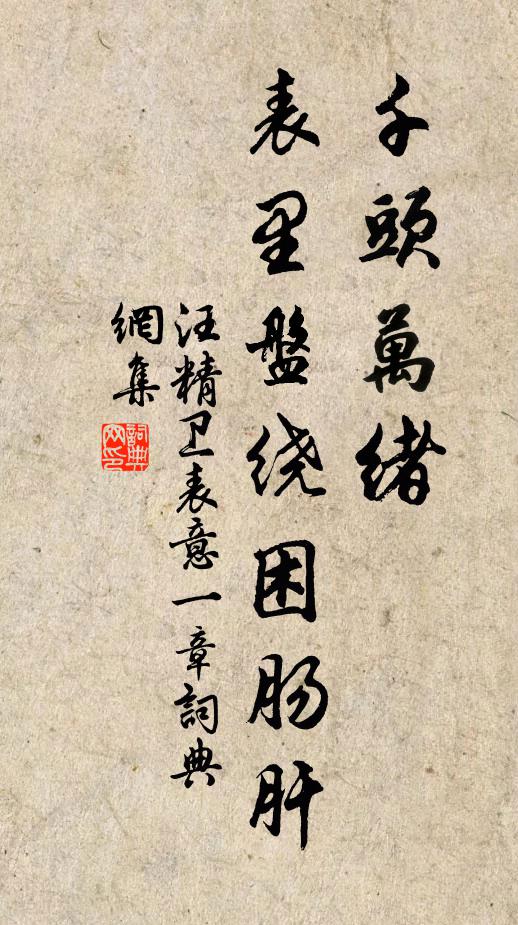 千頭萬緒
表里盤绕困肠肝
汪精卫表意一章詞典
網集
詞典
网印